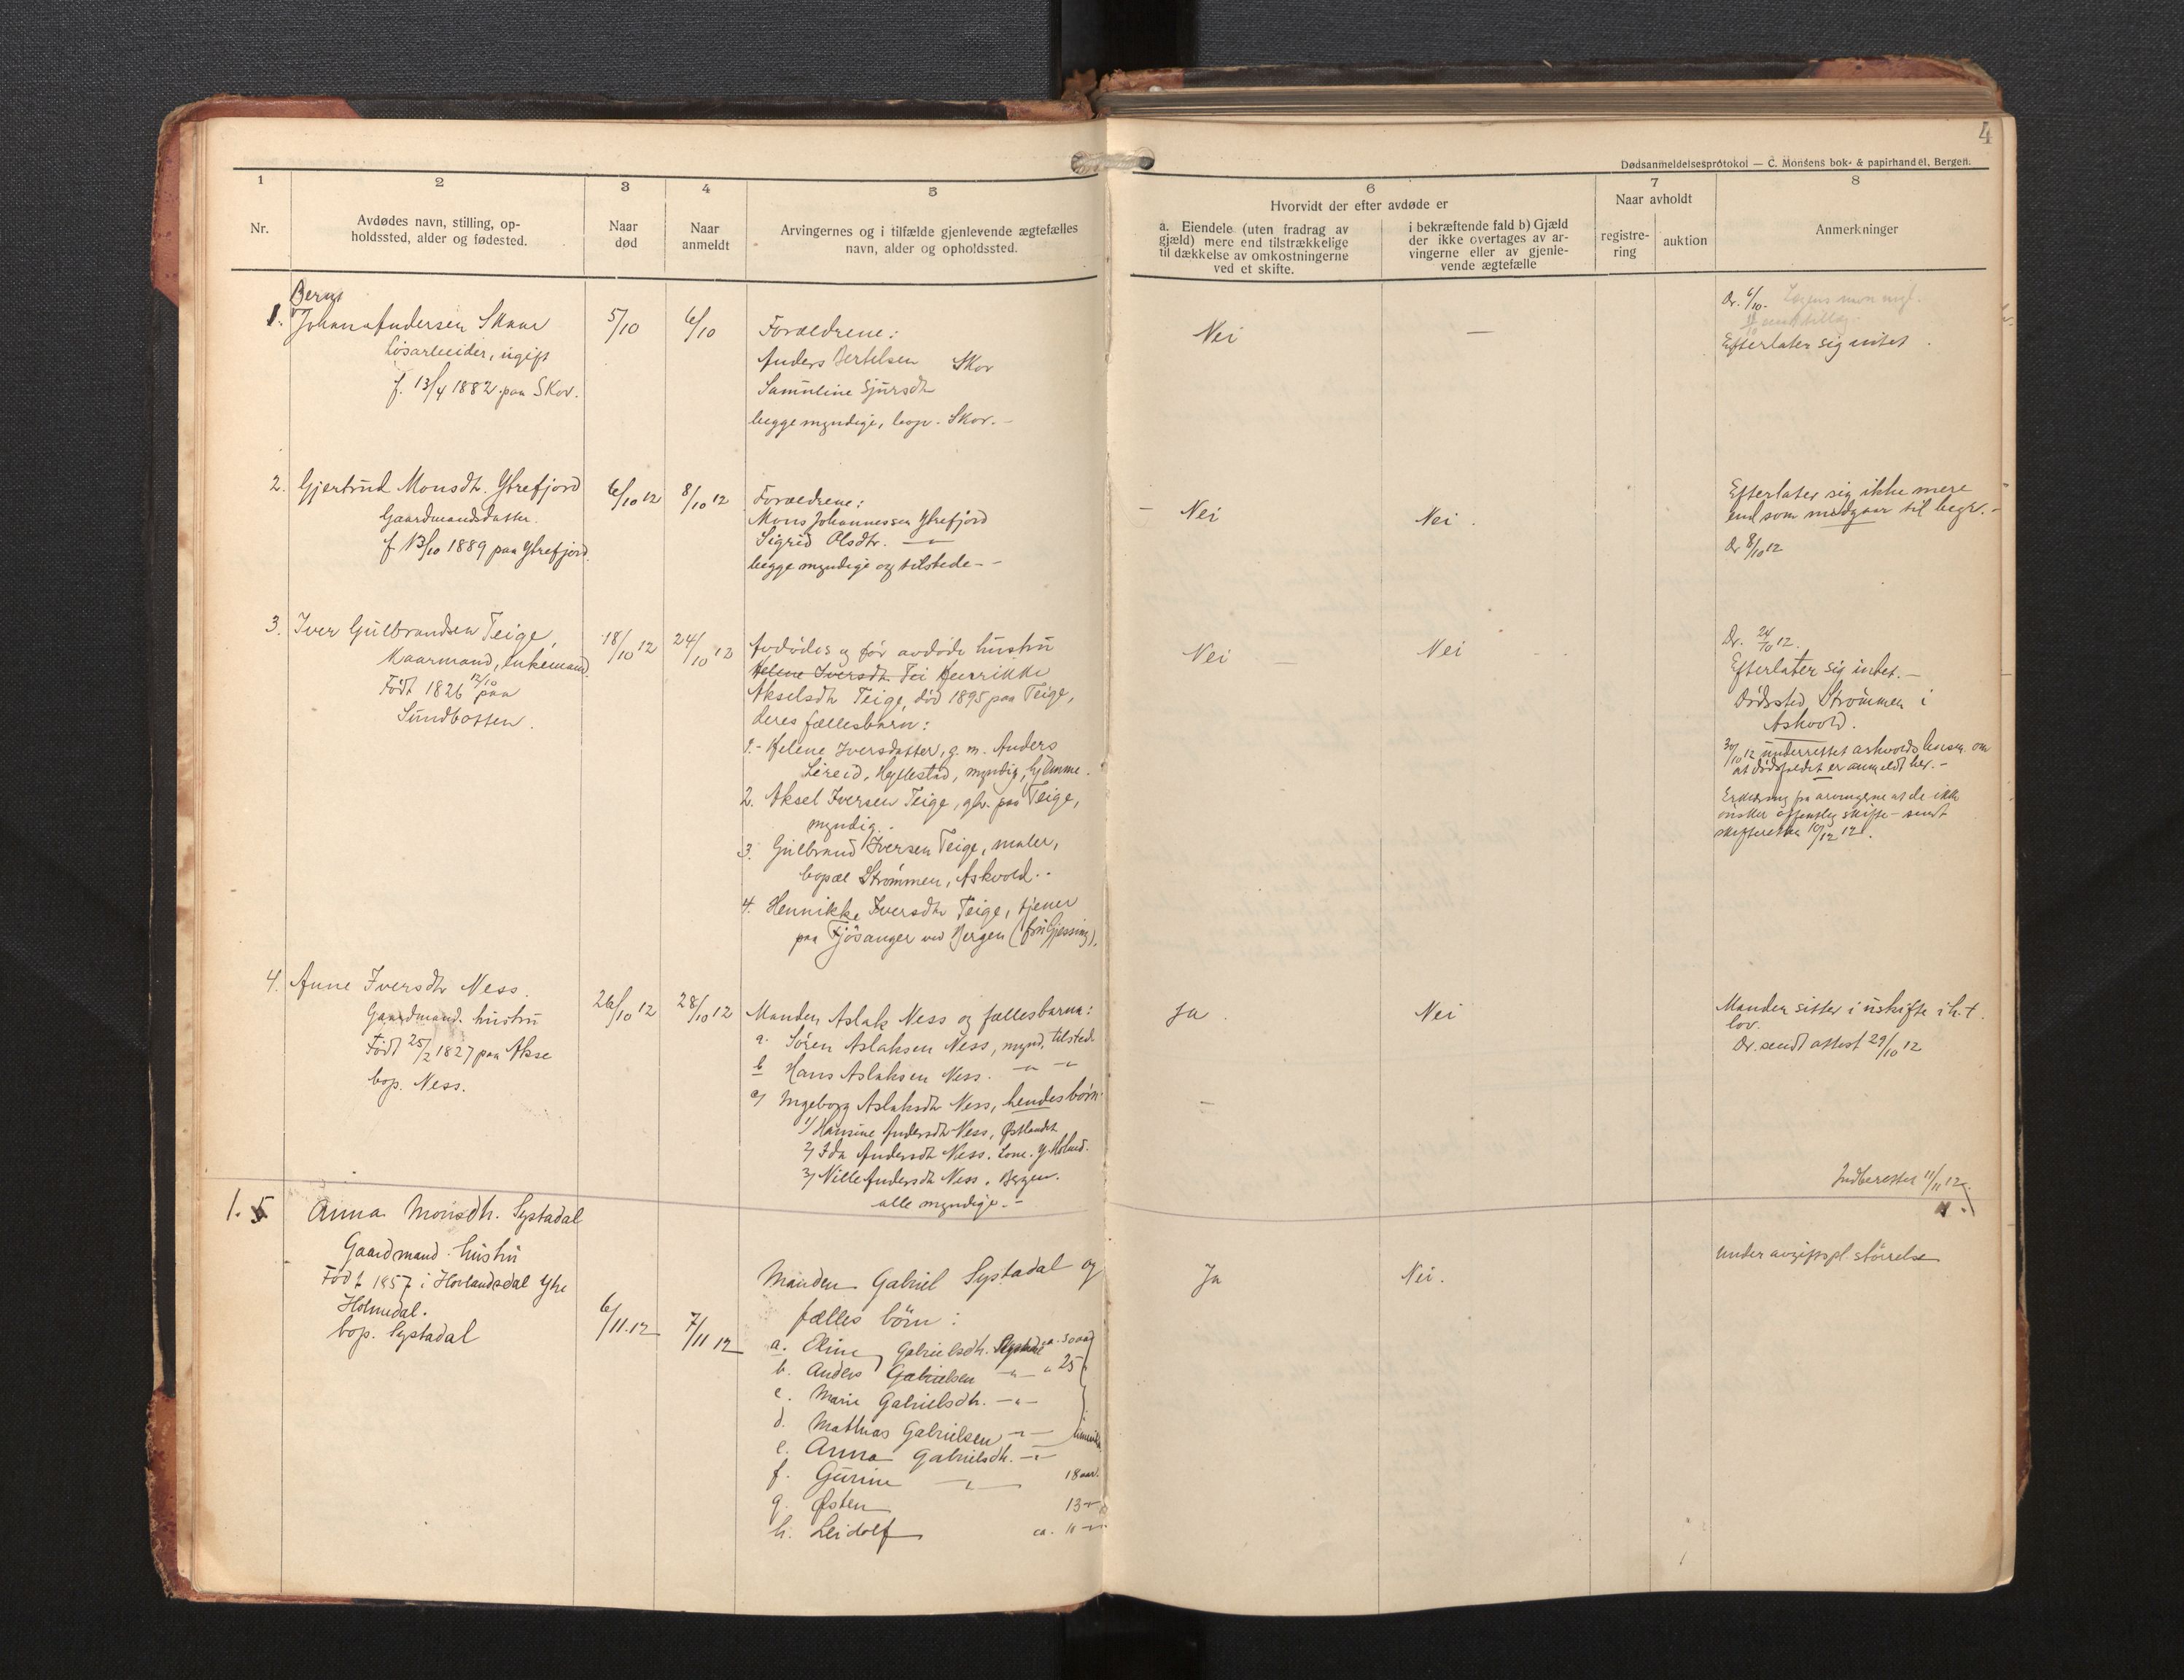 4
Dødsanmeldelsesprotokol — C. Monsens bok- & papirhandel, Bergen.
1
2
3
4
5
6
7
8
Nr.
Avdødes navn, stilling, op-
holdssted, alder og fødested.
Naar
død
Naar
anmeldt
Arvingernes og i tilfælde gjenlevende ægtefælles
navn, alder og opholdssted.
Hvorvidt der efter avdøde er
a. Eiendele (uten fradrag av
gjæld) mere end tilstrækkelige
til dækkelse av omkostningerne
ved et skifte.
i bekræftende fald b) Gjæld
der ikke overtages av ar-
vingerne eller av gjenle-
vende ægtefælle
Naar avholdt
registre-
ring
auktion
Anmerkninger
1.
Johan Andersen Skaar
Løsarbeider, ugift
f. 13/4 1882 paa Skor.
5/10
6/10
Forældrene:
Anders Bertelsen Skor
Samuline Sjursdtr
begge myndige, bop. Skor. -
Nei
—
Dr. 6/10.
Efterlater sig intet.
2. Gjertrud Monsdtr. Ytrefjord
Gaardmandsdatter.
f 13/10 1889 paa Ytrefjord.
6/10 12
8/10 12
Forældrene:
Mons Johannessen Ytrefjord
Sigrid Olsdtr. —"—
begge myndige og tilstede - -
- Nei
Nei.
Efterlater sig ikke mere
end som medgaar til begr. -
Dr 8/10 12
3. Iver Gulbrandsen Teige,
Kaarmand, enkemand.
Født 1826 12/10 paa
Sundbotten.
18/10 12
24/10 12
Avdødes og før avdøde hustru
Helene Iversdtr. Tei Henrikke
Akselsdtr Teige, død 1895 paa Teige,
deres fællesbarn:
1. - Helene Iversdatter, g. m. Anders
Leireid, Hyllestad, myndig, hjemme.
2. Aksel Iversen Teige, gbr. paa Teige,
myndig.
3. Gulbrand Iversen Teige, maler,
bopæl Strømmen, Askvold. -
4. Henrikke Iversdtr Teige, tjener
paa Fjøsanger ved Bergen (fru Gjessing).
Nei —
Nei
Dr. 24/10 12.
Efterlater sig intet. —
Dødssted Strømmen i
Askvold.
30/10 12 underrettet askvolds lensm. om
at dødsfaldet er anmeldt her. -
Erklæring fra arvingerne at de ikke
ønsker offentlig skifte - sendt
skifteretten 10/12 12.
4. Anne Iversdtr Ness.
Gaardmand. hustru
Født 25/2 1827 paa Akse
bop. Ness.
26/10 12
28/10 12
Manden Aslak Ness og fællesbarna:
a. Søren Aslaksen Ness, mynd. tilsted.
b Hans Aslaksen Ness. —"— —"—
c/ Ingeborg Aslaksdtr Ness, hendes børn:
1/ Hansine Andersdtr Ness, Østlandet
2/ Ida Andersdtr Ness.
3/ Nille Andersdtr Ness, Bergen.
alle myndige. -
Ja.
Nei
Manden sitter i uskifte i h. t.
lov.
Dr. sendt attest 29/10 12
Indberettet 11/11 12.
1. 5 Anna Monsdtr. Systadal
Gaardmand. hustru
Født 1857 i Hovlandsdal Ytre
Holmedal.
bop. Systadal
6/11.12
7/11 12
Manden Gabriel Systadal og
fælles børn:
a. Eline Gabrielsdtr. Systadal
b. Anders Gabrielsen —"— " 25
c. Marie Gabrielsdtr. —"—
d. Mathias Gabrielsen —"—
e. Anna Gabrielsdtr. —"—
f. Gurine —"— 18 aar.
g. Østen 13 "
h. Leidolf ca. 11 "
Ja
Nei.
under avgiftspl. størrelse